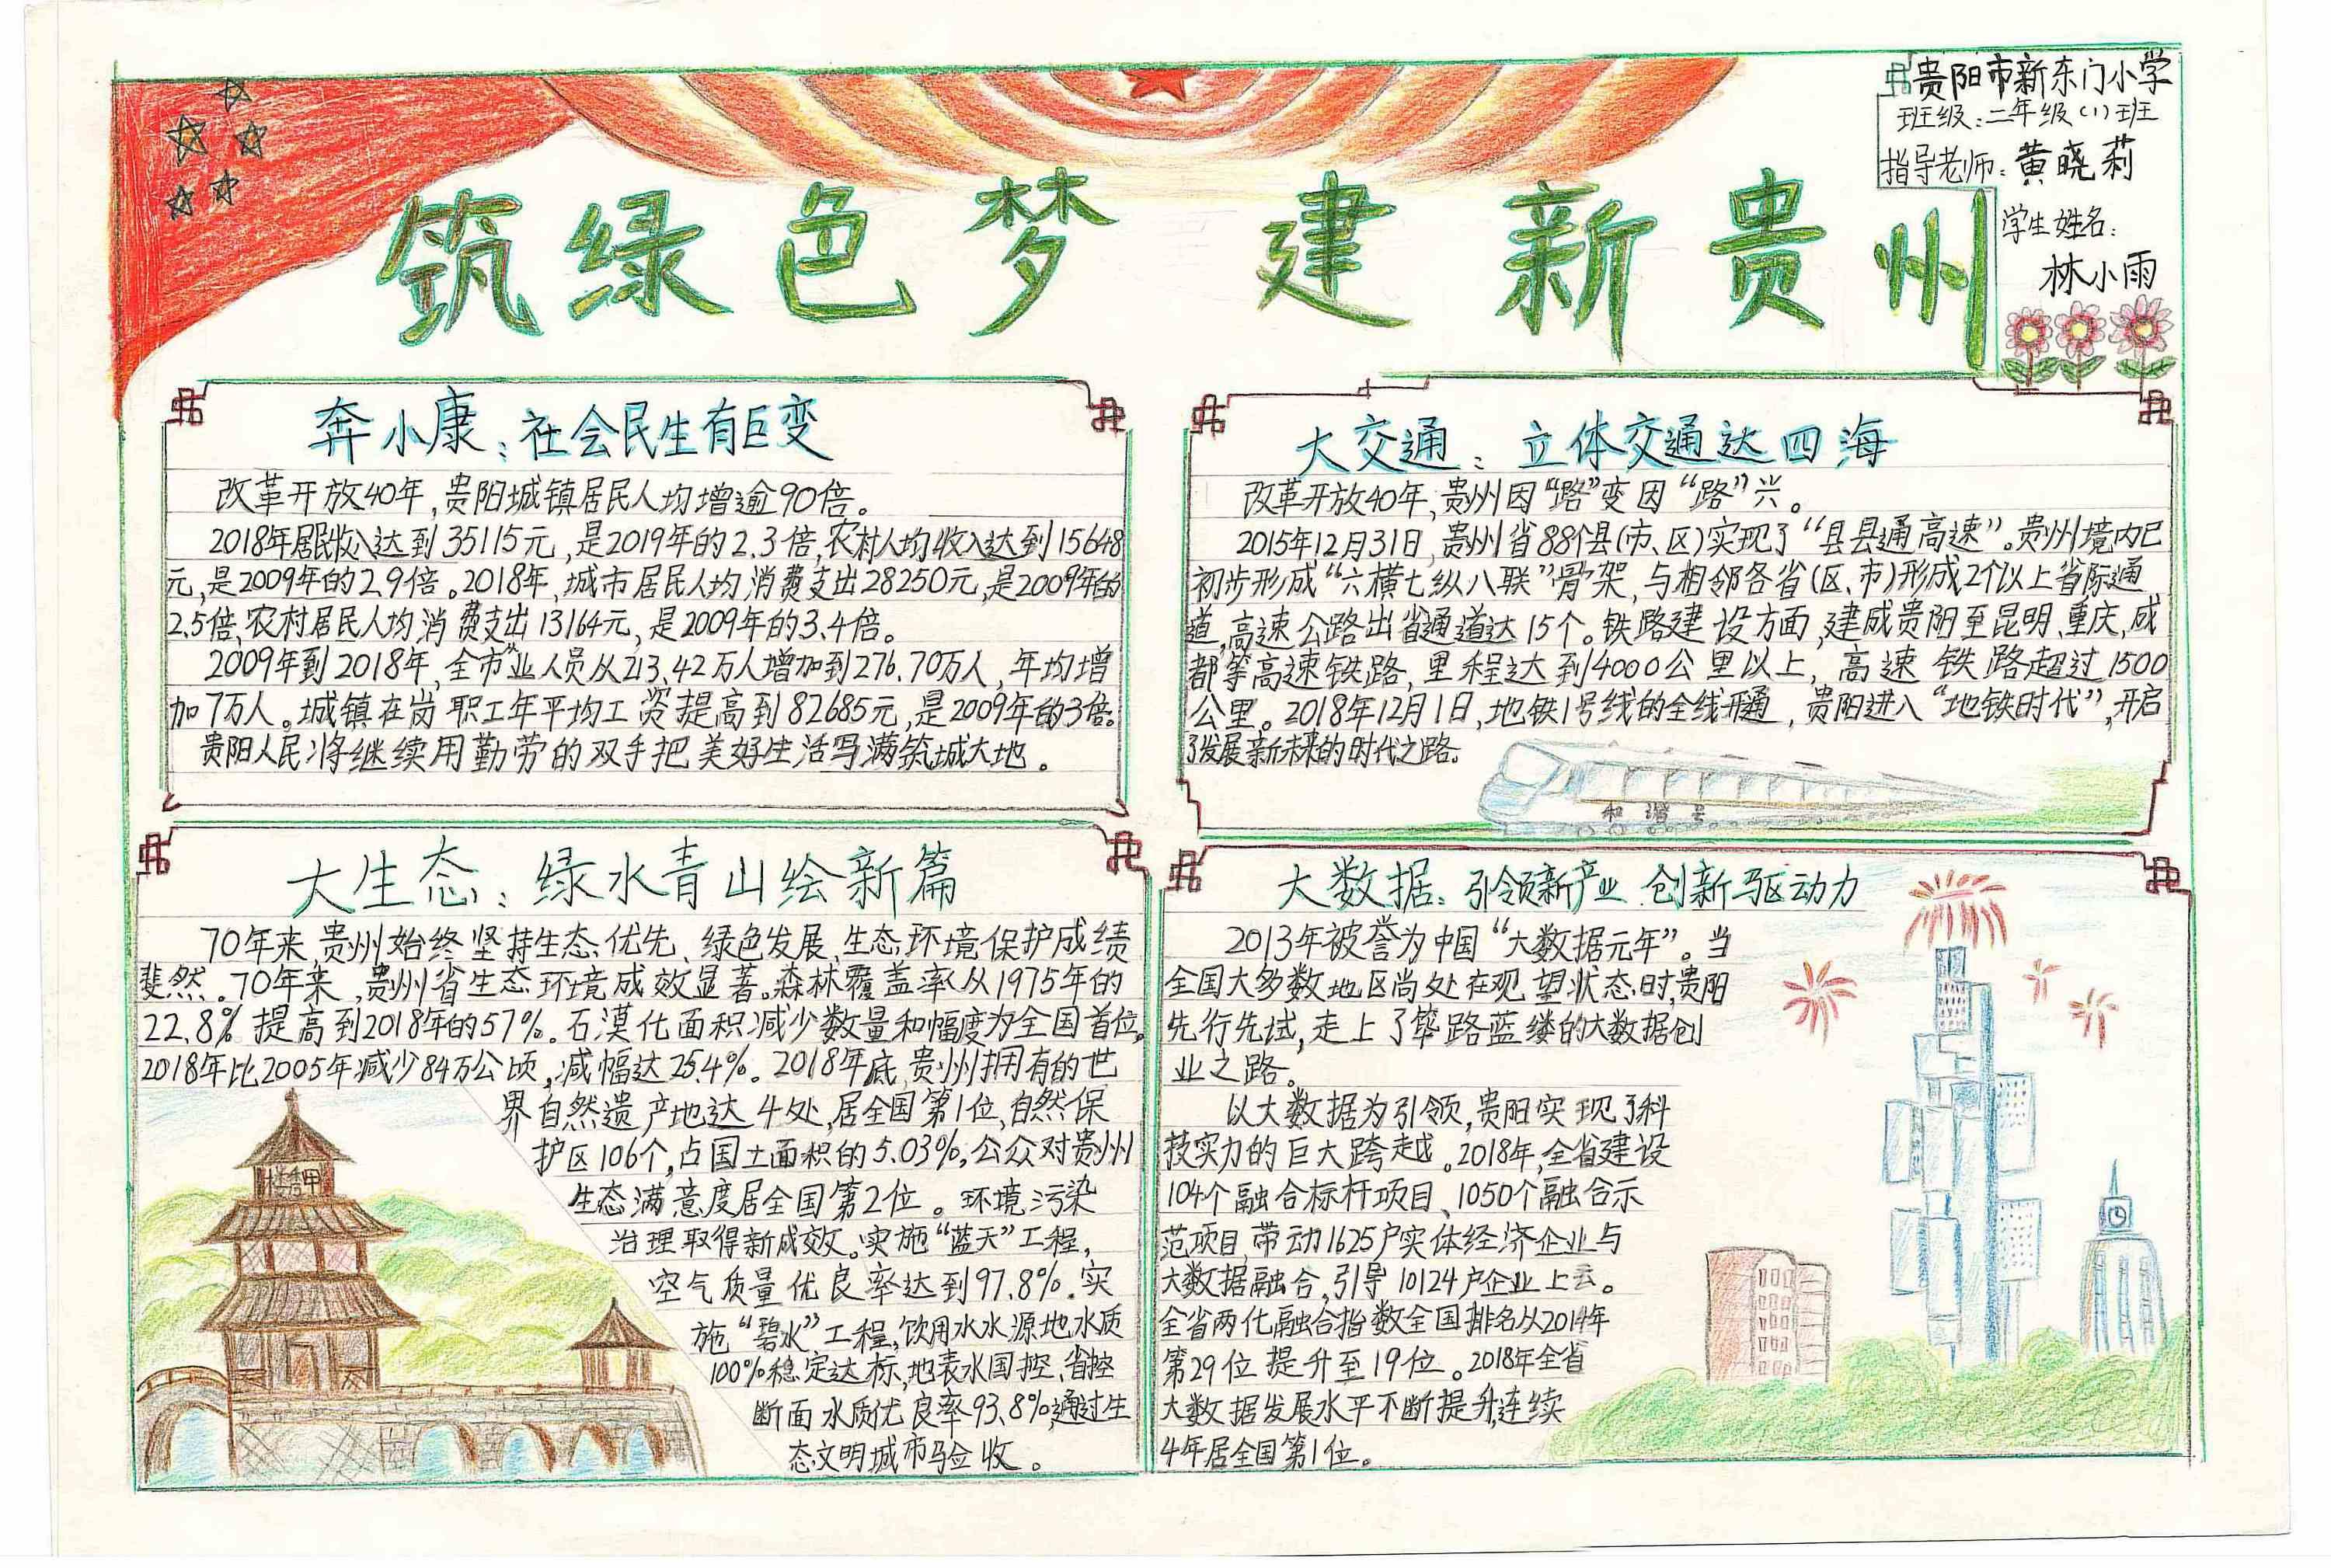 贵阳市新东门小学
班级:二年级(1)班
指导老师:黄晓莉
学生姓名:
林小雨
筑绿色梦 建新贵州
奔小康:社会民生有巨变
改革开放40年,贵阳城镇居民人均增逾90倍。
2018年居民收入达到35115元,是2019年的2.3倍,农村人均收入达到15648
元,是2009年的2.9倍。2018年,城市居民人均消费支出28250元,是2009年的
2.5倍,农村居民人均消费支出13164元,是2009年的3.4倍。
2009年到2018年,全市业人员从213.42万人增加到276.70万人,年均增
加7万人。城镇在岗职工年平均工资提高到82685元,是2009年的3倍。
贵阳人民将继续用勤劳的双手把美好生活写满筑城大地。
大交通:立体交通达四海
改革开放40年,贵州因“路”变因“路”兴。
2015年12月31日,贵州省88个县(市、区)实现了“县县通高速”。贵州境内已
初步形成“六横七纵八联”骨架,与相邻各省(区、市)形成2个以上省际通
道,高速公路出省通道达15个。铁路建设方面,建成贵阳至昆明、重庆、成
都等高速铁路,里程达到4000公里以上,高速铁路超过1500
公里。2018年12月1日,地铁1号线的全线开通,贵阳进入“地铁时代”,开启
了发展新未来的时代之路。
和谐号
大生态:绿水青山绘新篇
70年来,贵州始终坚持生态优先、绿色发展,生态环境保护成绩
斐然。70年来,贵州省生态环境成效显著。森林覆盖率从1975年的
22.8%提高到2018年的57%。石漠化面积减少数量和幅度为全国首位。
2018年比2005年减少84万公顷,减幅达25.4%。2018年底,贵州拥有的世
界自然遗产地达4处,居全国第1位,自然保
护区106个,占国土面积的5.03%,公众对贵州
生态满意度居全国第2位。环境污染
治理取得新成效。实施“蓝天”工程,
空气质量优良率达到97.8%.实
施“碧水”工程,饮用水水源地水质
100%稳定达标,地表水国控、省控
断面水质优良率93.8%,通过生
态文明城市验收。
甲秀楼
大数据:引领新产业 创新驱动力
2013年被誉为中国“大数据元年”。当
全国大多数地区尚处在观望状态时,贵阳
先行先试,走上了筚路蓝缕的大数据创
业之路。
以大数据为引领,贵阳实现了科
技实力的巨大跨越。2018年,全省建设
104个融合标杆项目、1050个融合示
范项目,带动1625户实体经济企业与
大数据融合,引导10124户企业上云。
全省两化融合指数全国排名从2014年
第29位提升至19位。2018年全省
大数据发展水平不断提升,连续
4年居全国第1位。